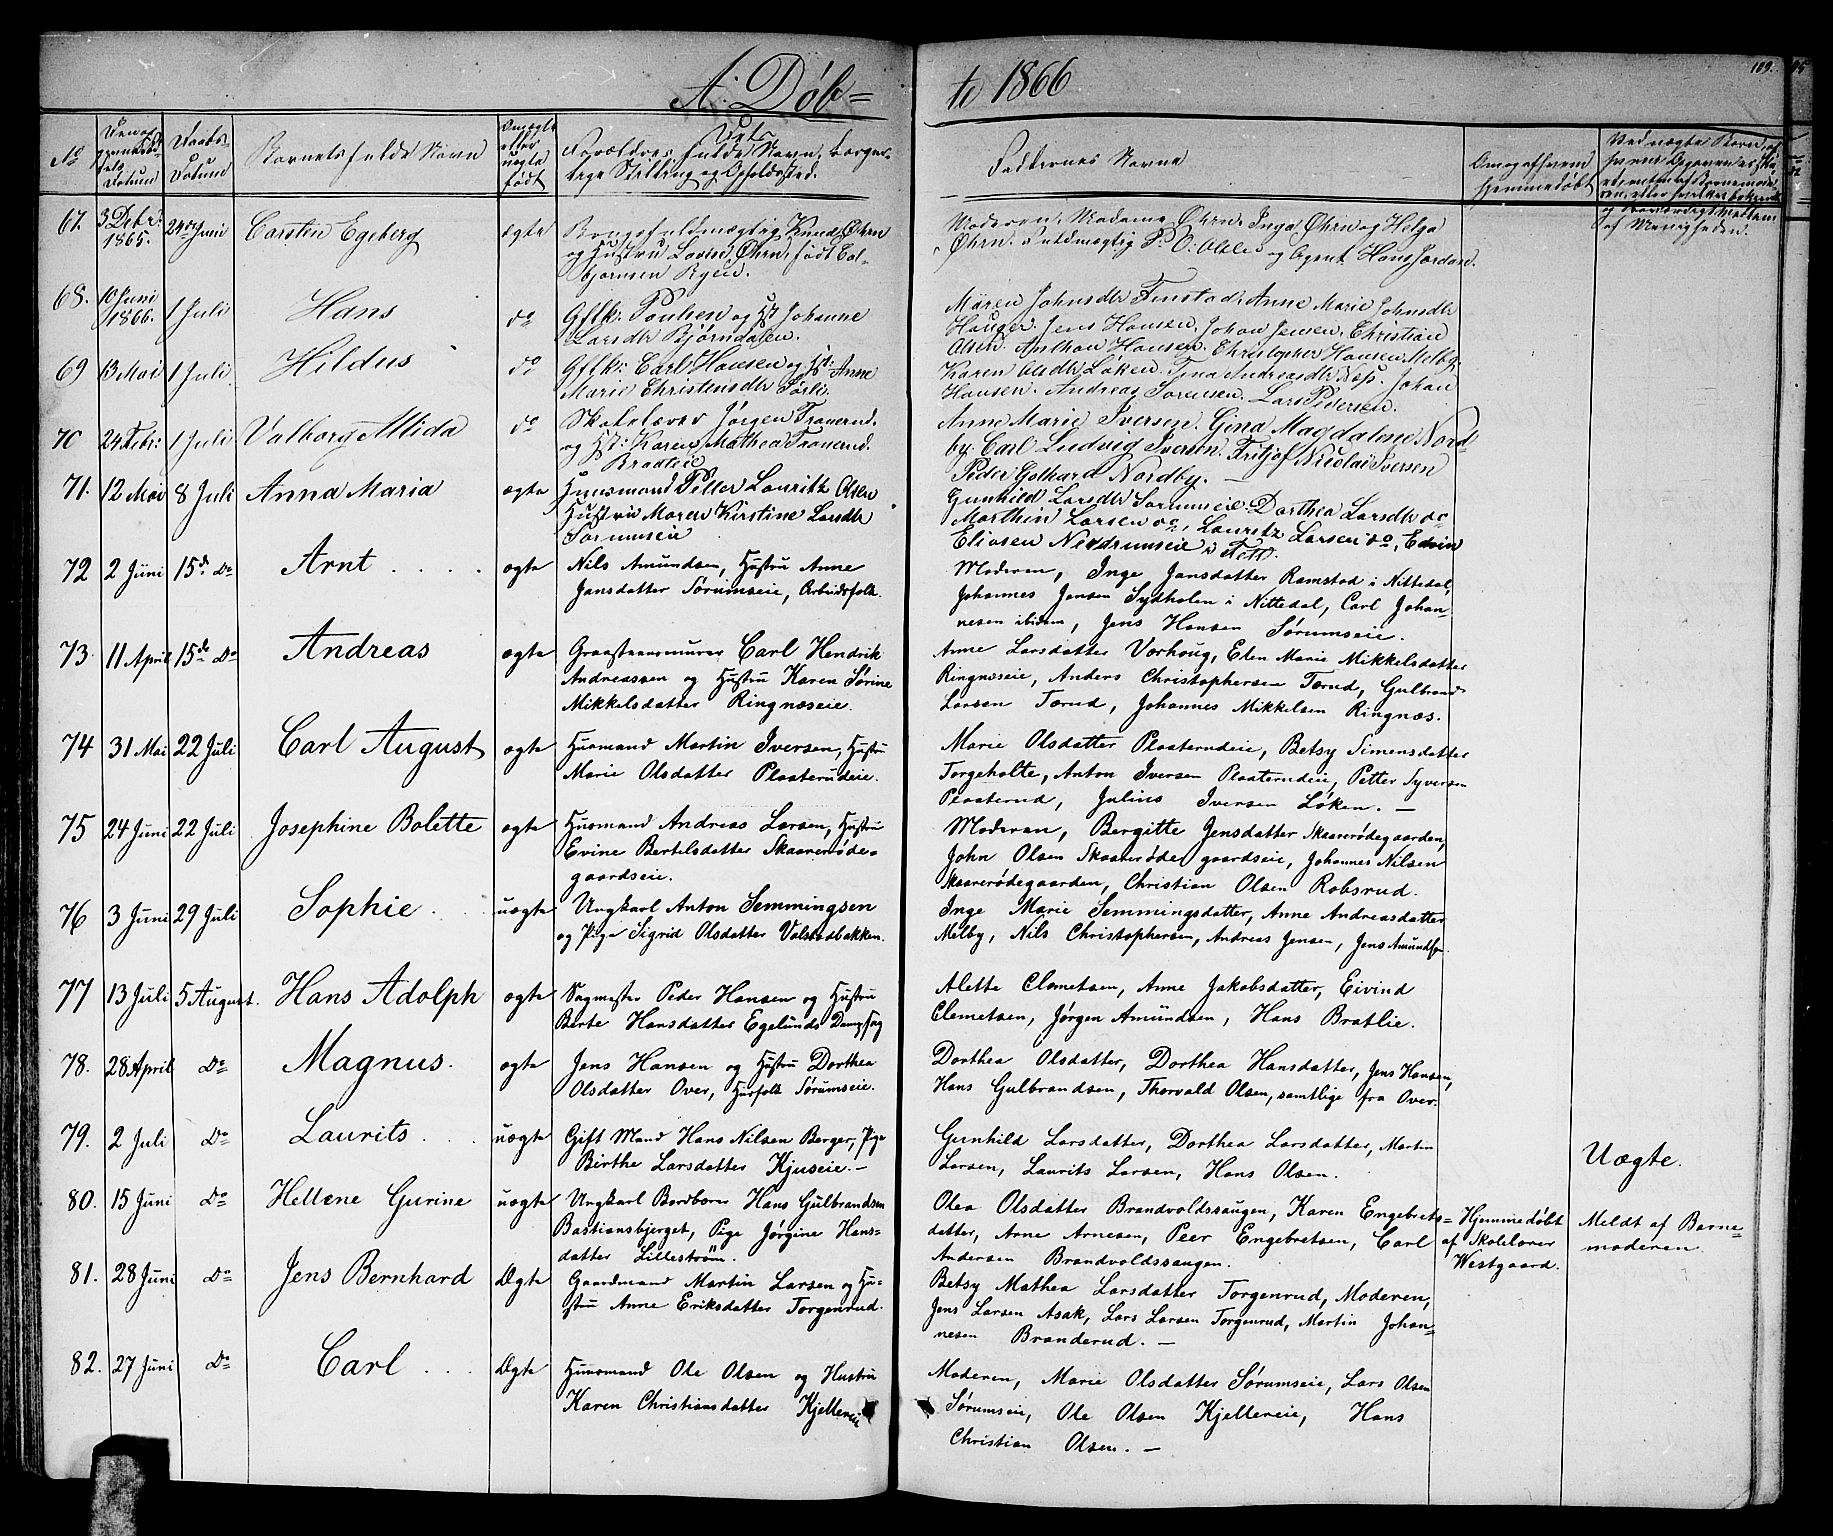 A: Døb= te 1866
109.
No
Daabs
Datum
Barnets fulde Navn
ægte
eller
uægte
født
Forældres fulde Navn, borger-
lige Stilling og Opholdssted.
Faddernes Navne
Om og af hvem
hjemmedøbt
67. 3 Debr: 1865. 24de Juni Carsten Egeberg ægte
Knud Øhrn
og Hustru Lovise Øhrn, født
Ryen.
Moderen, Madame Øhrn, Inga Øhrn og Helga
Øhrn, Fuldmægtig P. O: Olsen og Agent Hans Jordan.
68. 10 Juni 1866. 1 Juli Hans do
Gflk: Paulsen og Hst Johanne
Larsdtr Bjørndalen.
Maren Johnsdtr Finstad, Anne Marie Johnsdtr
Hauger, Jens Hansen, Johan Jensen, Christian
Olsen.
69 13 Mai 1 Juli Hildus do
Gflk: Carl Hansen og Hst: Anne
Marie Christensdtr Sørli.
Anthon Hansen, Christopher Hansen Melby,
Karen Olsdtr Løken, Tina Andreasdtr Næss, Johan
Hansen, Andreas Sørensen, Lars Pedersen.
70 24 Febr: 1 Juli Valborg Alida do
Skolelærer Jørgen Tranerud
og Hst: Karen Mathea Tranerud.
Braateie
Anne Marie Iversen, Gina Magdalene Nord-
by, Carl Ludvig Iversen, Fritjof Nicolai Iversen
Peder Gothard Nordby. —
71. 12 Mai 8 Juli Anna Maria ægte
Huusmand Petter Lauritz Olsen
Hustru Maren Kirstine Larsdtr
Sørumseie
Gunhild Larsdtr Sørumseie, Dorthea Larsdtr do
Marthin Larsen do, Lauritz Larsen do, Edvin
Eliasen Nedrumseie i Fett.
72 2 Juni 15de Do Arnt ægte
Nils Amundsen, Hustru Anne
Jansdatter Sørumseie, Arbeidsfolk.
Moderen, Inge Jansdatter Ramstad i Nittedal,
Johannes Jensen Sydholen i Nittedal, Carl Johan-
nesen ibidem, Jens Hansen Sørumseie.
73. 11 April 15de Do Andreas ægte
Graasteensmurer Carl Hendrik
Andreassen og Hustru Karen Sørine
Mikkelsdatter Ringnæseie.
Anne Larsdatter Vorhoug, Elen Marie Mikkelsdatter
Ringnæseie, Anders Christophersen Tærud, Gulbrand
Larsen Tærud, Johannes Mikkelsen Ringnæs.
74 31 Mai 22 Juli Carl August ægte
Huusmand Martin Iversen, Hustru
Marie Olsdatter Plaaterudeie.
Marie Olsdatter Plaaterudeie, Betsy Simensdatter
Torgeholte, Anton Iversen Plaaterudeie, Petter Syversen
Plaaterud, Julius Iversen Løken. —
75 24 Juni 22 Juli Josephine Bolette ægte
Huusmand Andreas Larsen, Hustru
Evine Bertelsdatter Skaarerøde-
gaardseie.
Moderen, Bergitte Jensdatter Skaarerødegaarden,
John Olsen Skaarerødegaardseie, Johannes Nilsen
Skaarerødegaarden, Christian Olsen Robsrud.
76 3 Juni 29 Juli Sophie uægte
Ungkarl Anton Semmingsen
og Pige Sigrid Olsdatter Valstadbakken.
Inge Marie Semmingsdatter, Anne Andreasdatter
Melby, Nils Christophersen, Andreas Jensen, Jens Amundsen.
77 13 Juli 5 August. Hans Adolph ægte
Sagmester Peder Hansen og Hustru
Berte Hansdatter Egelunds Dampsag
Alette Clemetsen, Anne Jakobsdatter, Eivind
Clemetsen, Jørgen Amundsen, Hans Bratlie.
78. 28 April Do Magnus. ægte
Jens Hansen og Hustru Dorthea
Olsdatter Over, Huusfolk Sørumseie.
Dorthea Olsdatter, Dorthea Hansdatter, Jens Hansen,
Hans Gulbrandsen, Thorvald Olsen, samtlige fra Over.
79. 2 Juli Do Laurits uægte
Gift Mand Hans Nilsen Berger, Pige
Birthe Larsdatter Kjuseie. —
Gunhild Larsdatter, Dorthea Larsdatter, Martin
Larsen, Laurits Larsen, Hans Olsen.
Uægte.
80. 15 Juni Do Hellene Gurine uægte
Ungkarl Bordbærer Hans Gulbrandsen
Bastiansbjerget, Pige Jørgine Hans-
datter Lillestrøm.
Olea Olsdatter Brandvoldssaugen, Karen Engebrets-
datter, Arne Arnesen, Peer Engebretsen, Carl
Andersen Brandvoldssaugen.
Hjemmedøbt
af Skolelærer
Westgaard.
Meldt af Barne-
moderen.
81. 28 Juni Do Jens Bernhard Ægte
Gaardmand Martin Larsen og Hu-
stru Anne Eriksdatter Torgenrud.
Betsy Mathea Larsdatter Torgenrud, Moderen,
Jens Larsen Asak, Lars Larsen Torgenrud, Martin Johan-
nesen Branderud. —
82. 27 Juni Do Carl Ægte
Huusmand Ole Olsen og Hustru
Karen Christiansdatter Kjellereie
Moderen, Marie Olsdatter Sørumseie, Lars Olsen
Sørumseie, Ole Olsen Kjellereie, Hans
Christian Olsen. —